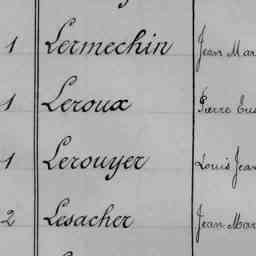 1 Lermechin Jean Mar
1 Leroux Pierre Eus
1 Lerouyer Louis Jean
2 Lesacher Jean Mar